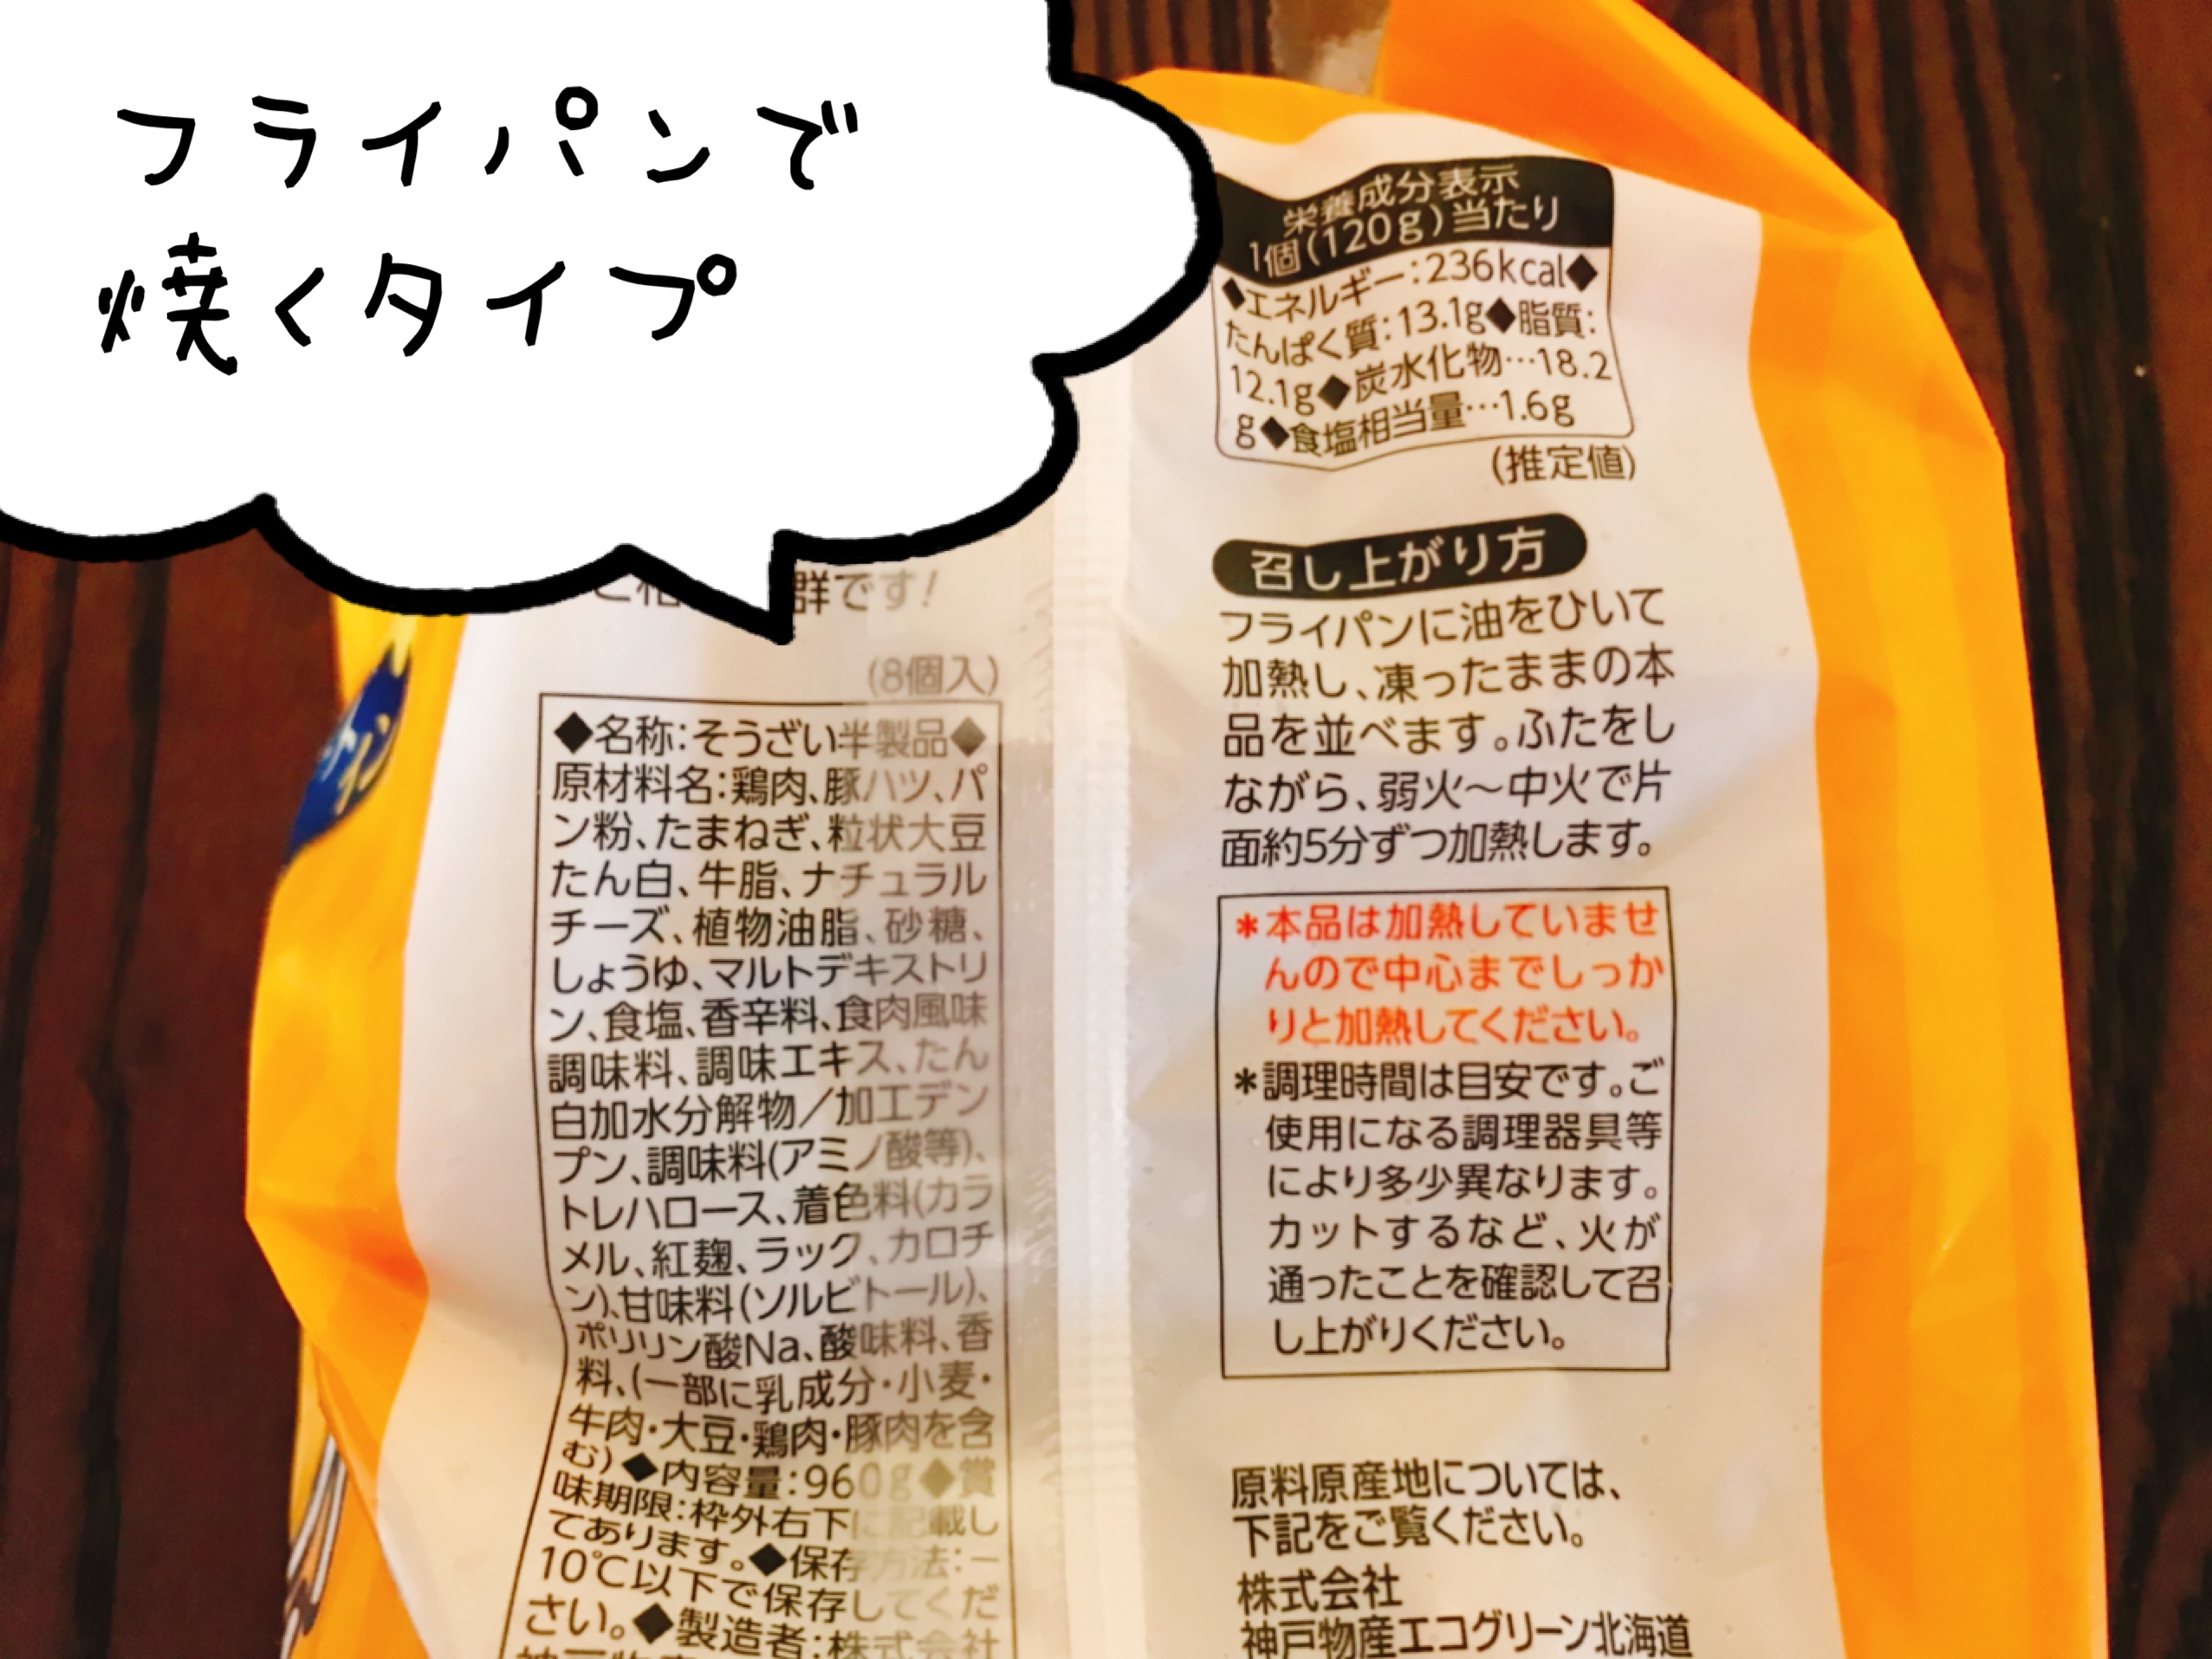 フライパンで
焼くタイプ
群です!
(8個入)
◆名称:そうざい半製品◆
原材料名:鶏肉、豚ハツ、パ
ン粉、たまねぎ、粒状大豆
たん白、牛脂、ナチュラル
チーズ、植物油脂、砂糖、
しょうゆ、マルトデキストリ
ン、食塩、香辛料、食肉風味
調味料、調味エキス、たん
白加水分解物/加工デン
プン、調味料(アミノ酸等)、
トレハロース、着色料(カラ
メル、紅麹、ラック、カロチ
ン)、甘味料(ソルビトール)、
ポリリン酸Na、酸味料、香
料、(一部に乳成分・小麦・
牛肉・大豆・鶏肉・豚肉を含
む)◆内容量:960g◆賞
味期限:枠外右下に記載し
てあります。◆保存方法:ー
10℃以下で保存してくだ
さい。◆製造者:株式会社
栄養成分表示
1個(120g)当たり
◆エネルギー:236kcal◆
たんぱく質:13.1g◆脂質:
12.1g◆炭水化物…18.2
g◆食塩相当量…1.6g
(推定値)
召し上がり方
フライパンに油をひいて
加熱し、凍ったままの本
品を並べます。ふたをし
ながら、弱火〜中火で片
面約5分ずつ加熱します。
*本品は加熱していませ
んので中心までしっか
りと加熱してください。
*調理時間は目安です。ご
使用になる調理器具等
により多少異なります。
カットするなど、火が
通ったことを確認して召
し上がりください。
原料原産地については、
下記をご覧ください。
株式会社
神戸物産エコグリーン北海道